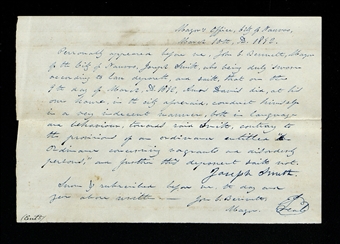 Mayor's Office, City of Nauvoo,
March 10th, D. 1842.
Personally appeared before me, John C. Bennett, Mayor
of the City of Nauvoo, Joseph Smith, who being duly sworn
according to law, deposeth and saith, that on this
9th day of March, A.D. 1842, Amos Davis did, at his
own house, in the city aforesaid, conduct himself
in a very indecent manner, both in language
and behaviour, towards said Smith, contrary to
the provisions of an ordinance entitled "An
Ordinance concerning vagrants and disorderly
persons," and further this deponent saith not.
Joseph Smith.
Sworn & subscribed before me, the day and
year above written — John C. Bennett
Mayor.